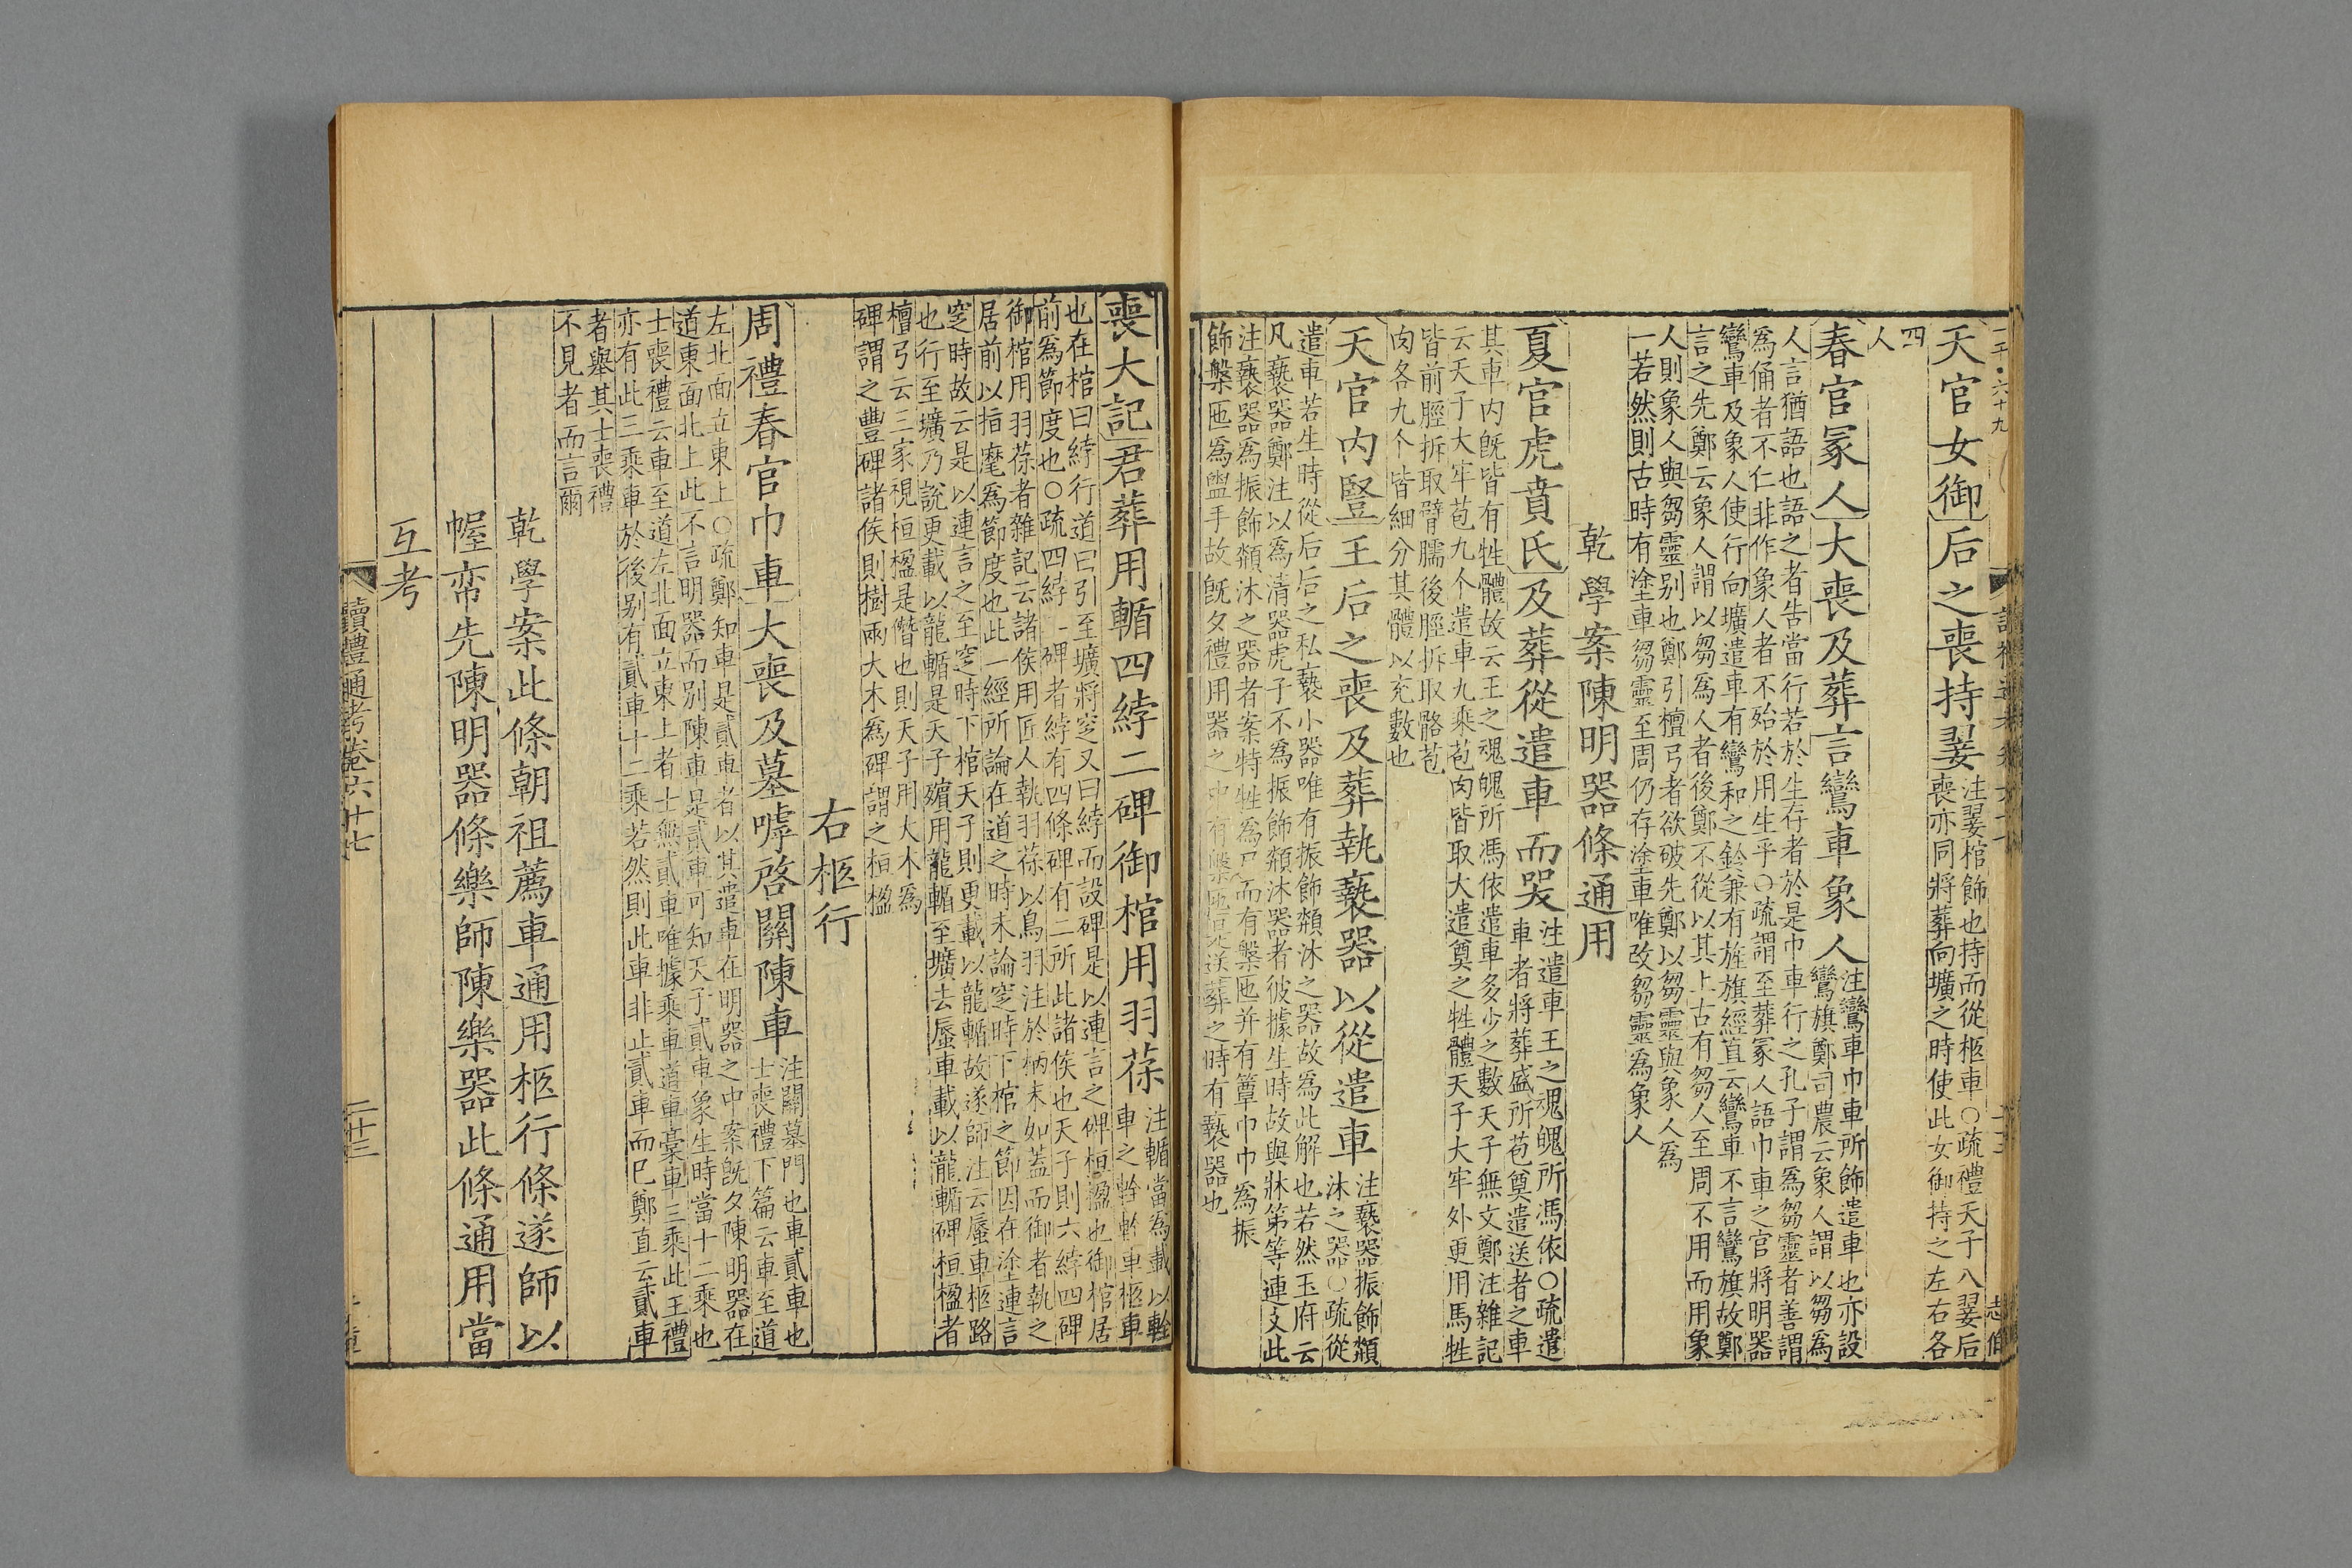 二千·六十九
天官女御后之喪持翣
注翣棺飾也持而從柩車○疏禮天子八翣后
喪亦同將葬向壙之時使此女御持之左右各
四
人
春官冢人大喪及葬言鸞車象人
注鸞車巾車所飾遣車也亦設
鸞旗鄭司農云象人謂以芻為
人言猶語也語之者告當行若於生存者於是巾車行之孔子謂為芻靈者善謂
為俑者不仁非作象人者不殆於用生乎○疏謂至葬冢人語巾車之官將明器
鸞車及象人使行向壙遣車有鸞和之鈴兼有旌旗經直云鸞車不言鸞旗故鄭
言之先鄭云象人謂以芻為人者後鄭不從以其上古有芻人至周不用而用象
人則象人與芻靈别也鄭引檀弓者欲破先鄭以芻靈與象人為
一若然則古時有塗車芻靈至周仍存塗車唯改芻靈為象人
乾學案陳明器條通用
夏官虎賁氏及葬從遣車而哭
注遣車王之魂魄所馮依○疏遣
車者將葬盛所苞奠遣送者之車
其車内旣皆有牲體故云王之魂魄所馮依遣車多少之數天子無文鄭注雜記
云天子大牢苞九个遣車九乘苞肉皆取大遣奠之牲體天子大牢外更用馬牲
皆前脛折取臂臑後脛折取骼苞
肉各九个皆細分其體以充數也
天官内豎王后之喪及葬執褻器以從遣車
注褻器振飾頮
沐之器○疏從
遣車若生時從后后之私褻小器唯有振飾頮沐之器故為此解也若然玉府云
凡褻器鄭注以為清器虎子不為振飾頮沐器者彼據生時故與牀第等連文此
注褻器為振飾頮沐之器者案特牲為尸而有槃匜并有簞巾巾為振
飾槃匜為盥手故旣夕禮用器之中有槃匜是送葬之時有褻器也
喪大記君葬用輴四綍二碑御棺用羽葆
注輴當為載以輇
車之輇輇車柩車
也在棺曰綍行道曰引至壙將窆又曰綍而設碑是以連言之碑桓楹也御棺居
前為節度也○疏四綍二碑者綍有四條碑有二所此諸侯也天子則六綍四碑
御棺用羽葆者雜記云諸侯用匠人執羽葆以鳥羽注於柄末如蓋而御者執之
居前以指麾為節度也此一經所論在道之時未論窆時下棺之節因在塗連言
窆時故云是以連言之至窆時下棺天子則更載以龍輴故遂師注云蜃車柩路
也行至壙乃說更載以龍輴是天子殯用龍輴至壙去蜃車載以龍輴碑桓楹者
檀弓云三家視桓楹是僭也則天子用大木為
碑謂之豐碑諸侯則樹兩大木為碑謂之桓楹
右柩行
周禮春官巾車大喪及墓嘑啓關陳車
注關墓門也車貳車也
士喪禮下篇云車至道
左北面立東上○疏鄭知車是貳車者以其遣車在明器之中案旣夕陳明器在
道東面北上此不言明器而别陳車是貳車可知天子貳車象生時當十二乘也
士喪禮云車至道左北面立東上者士無貳車唯據乘車道車槀車三乘此王禮
亦有此三乘車於後别有貳車十二乘若然則此車非止貳車而已鄭直云貳車
者舉其士喪禮
不見者而言爾
乾學案此條朝祖薦車通用柩行條遂師以
幄帟先陳明器條樂師陳樂器此條通用當
互考
讀禮通考卷六十七
二十三